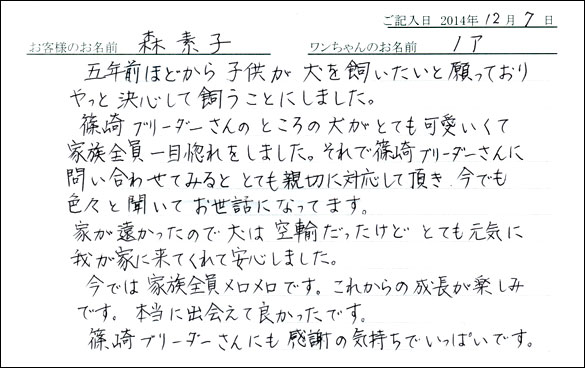 ご記入日 2014年 12月 7日
お客様のお名前 森 素子 ワンちゃんのお名前 ノア
五年前ほどから 子供が 犬を飼いたいと願っており
やっと 決心して 飼うことにしました。
篠崎ブリーダーさんの ところの犬が とても 可愛いくて
家族全員 一目惚れをしました。それで篠崎ブリーダーさんに
問い合わせてみると とても親切に対応して頂き、今でも
色々と聞いて お世話になってます。
家が遠かったので犬は 空輸だったけど とても元気に
我が家に来てくれて安心しました。
今では 家族全員メロメロです。これからの成長が楽しみ
です。本当に出会えて良かったです。
篠崎ブリーダーさんにも 感謝の気持ちでいっぱいです。